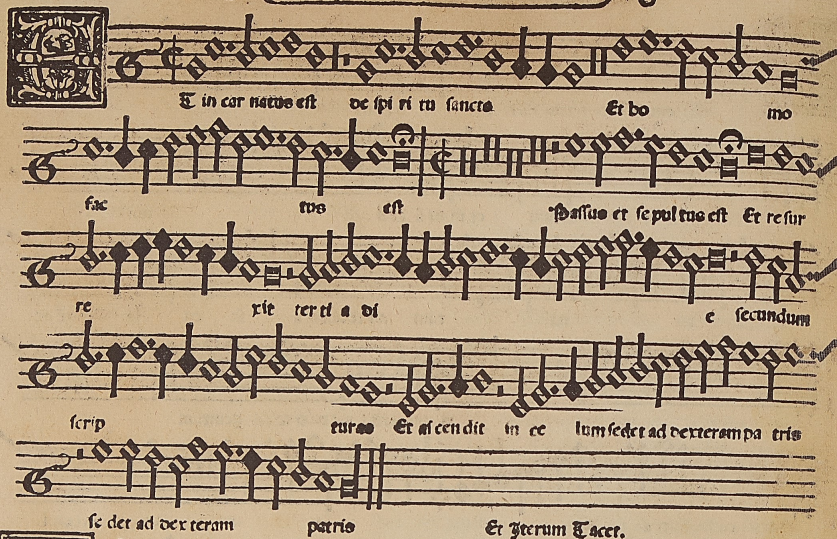 ET in car natus est de spi ri tu sancto Et ho mo
fac tus est Passus et se pul tus est Et re sur
re xit ter ti a di e secundum
scrip turas Et as cen dit in ce lum sedet ad dexteram pa tris
se det ad dex teram patris Et Iterum Tacet.